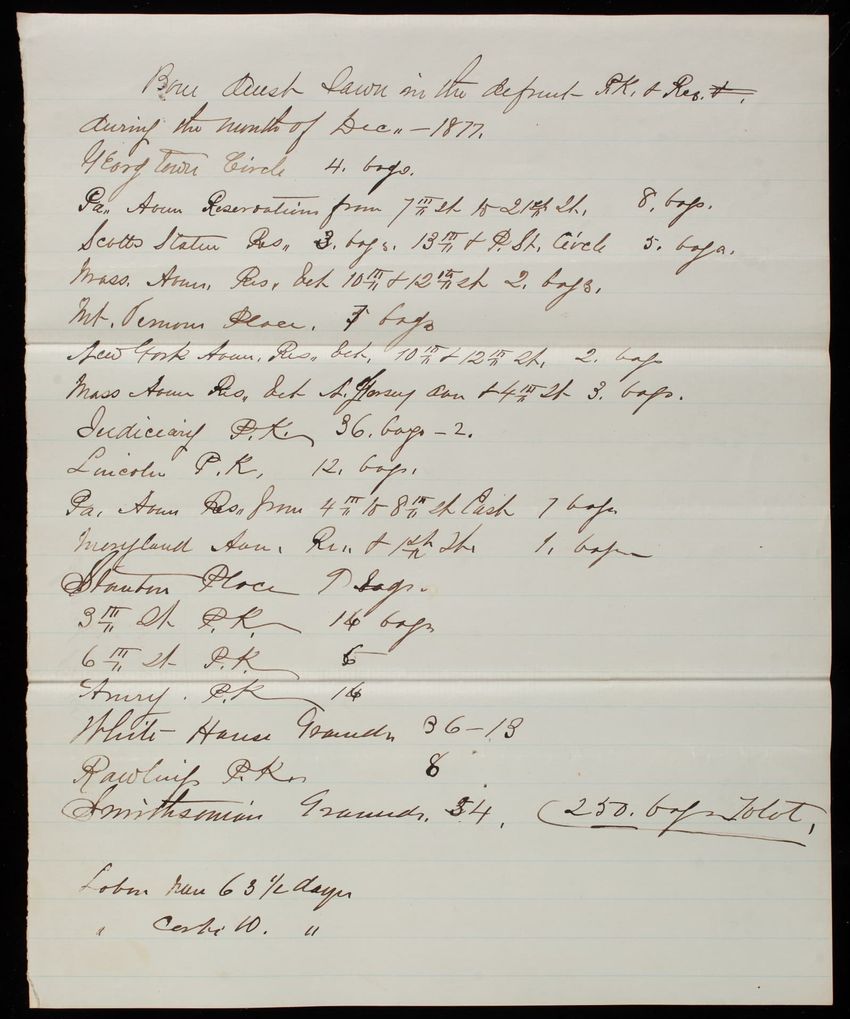 Bone Dust Sawn in the difrent P.K. & Res. &.
during the month of Dec,, - 1877.
Georg Town Circle 4. bags.
Pa,, Avnu Reservations from 7th St to 21st St. 8. bags.
Scotts Statue Res,, 3. bags. 13th & P. St. Circle 5. bags.
Mass. Avnu. Res,, bet 10th & 12th St 2. bags.
Mt. Vernon Place. 5 bags
New York Avnu. Res,, bet. 10th & 12th St. 2. bags
Mass Avnu Res,, bet N. Jersey Avn & 4th St 3. bags.
Judiciary P.K. 36. bags - 2.
Lincoln P.K. 12. bags.
Pa. Avnu Res,, from 4th to 8th St East 7 bags
Maryland Avn. Res,, & 1st St. 1. bags
Stanton Place 9 bags.
3th St P.K. 14 bags
6th St P.K. 5
Armry. P.K. 14
White House Grounds 36 - 13
Rawlins P.K. 8
Smithsonian Grounds. 34. 250. bags Totol.
Labor Men 63 1/2 days
" Carts 10. "